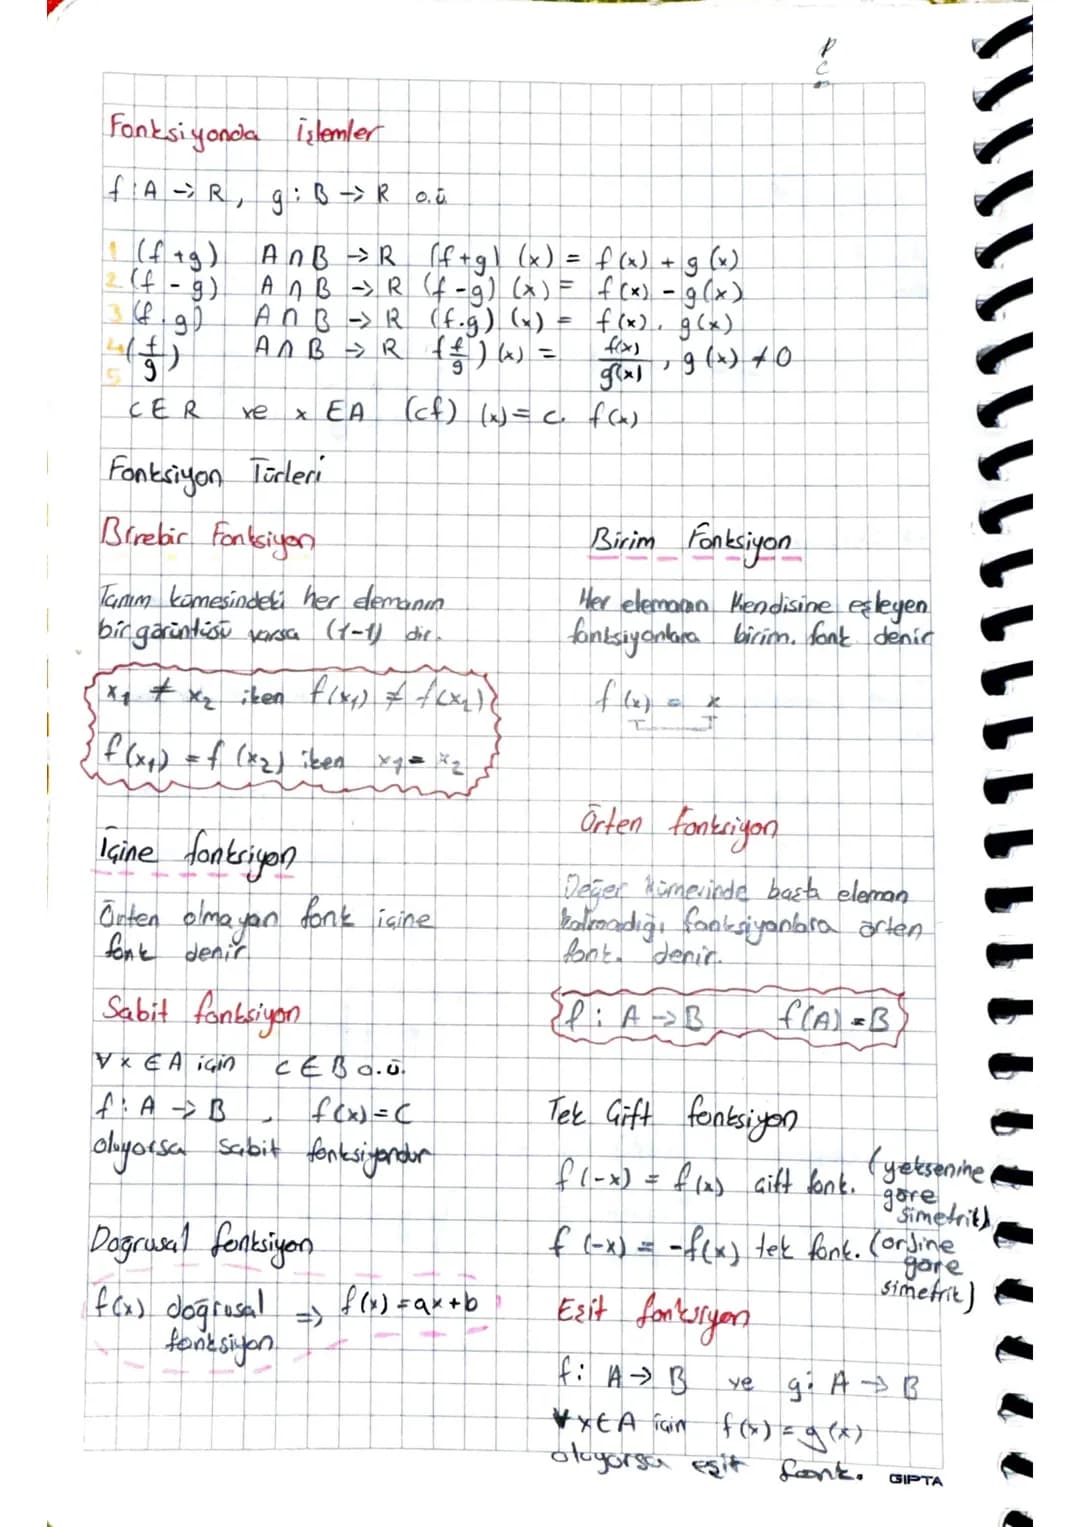 Fonksiyonda işlemler
f : A → R, g : B → R o.ü
1 (f + g) A ∩ B → R (f + g) (x) = f(x) + g(x)
2 (f - g) A ∩ B → R (f - g) (x) = f(x) - g(x)
3 (f . g) A ∩ B → R (f.g) (x) = f(x) . g(x)
4 (f/g) A ∩ B → R (f/g) (x) = f(x)/g(x) , g(x) ≠ 0
5 C ∈ R ve x ∈ A (cf) (x) = c. f(x)
Fonksiyon Türleri
Birebir Fonksiyon
Tanım kümesindeki her elemanın
bir görüntüsü varsa (1-1) dir.
x₁ ≠ x₂ iken f(x₁) ≠ f(x₂)
f(x₁) = f(x₂) iken x₁ = x₂
Birim Fonksiyon
Her elemanın Kendisine eşleyen
fonksiyonlara birim. fonk denir
f(x) = x
İçine fonksiyon
Örten olmayan fonk içine
fonk denir
Örten fonksiyon
Değer kümesinde boşta eleman
kalmadığı fonksiyonlara örten
fonk. denir.
f : A → B f(A) = B
Sabit fonksiyon
∀x ∈ A için c ∈ B o.ü.
f : A → B , f(x) = C
oluyorsa sabit fonksiyondur
Tek Çift fonksiyon
f(-x) = f(x) çift fonk. (y eksenine
göre
simetrik)
f(-x) = -f(x) tek fonk. (orjine
göre
simetrik)
Doğrusal fonksiyon
f(x) doğrusal ⇒ f(x) = ax+b
fonksiyon
Eşit fonksiyon
f: A → B ve g: A → B
∀x∈A için f(x) = g(x)
oluyorsa eşit fonk.
GIPTA